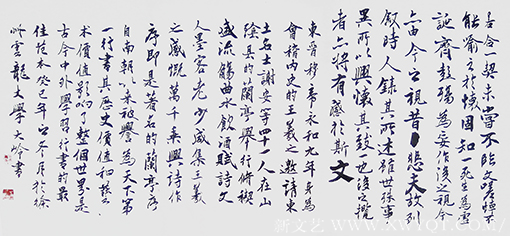 古合一契未嘗不臨文嗟悼不
能喻之於懷固知一死生為虛
誕齊彭殤為妄作後之視今
亦由今之視昔悲夫故列
叙時人錄其所述雖世殊事
異所以興懷其致一也後之攬
者亦將有感於斯文
東晉穆帝永和九年身為
會稽內史的王羲之邀請東
土名士謝安等四十一人在山
陰縣的蘭亭舉行修禊
盛流觴曲水飲酒賦詩文
人墨客老少咸集王羲
之感慨萬千乘興詩作
序即是著名的蘭亭序
自南朝以來被譽為天下第
一行書其歷史價值和藝
術價值影响了整個世界是
古今中外學習行書的最
佳范本癸巳年冬月於徐
雲龍大學大書
新文艺